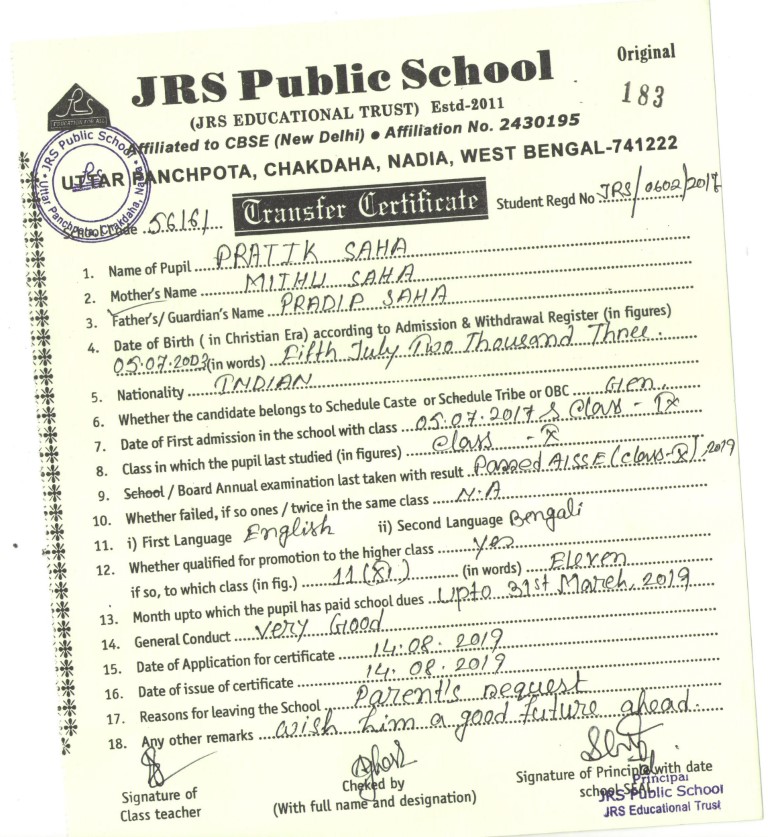 Original
JRS Public School
183
(JRS EDUCATIONAL TRUST) Estd-2011
EDUCATION FOR ALL
Affiliated to CBSE (New Delhi) ● Affiliation No. 2430195
UTTAR PANCHPOTA, CHAKDAHA, NADIA, WEST BENGAL-741222
JRS Public School Uttar Panchpota, Chakdaha, Nadia
School Code 56161 Transfer Certificate Student Regd No JRS/0602/2017
1. Name of Pupil PRATIK SAHA
2. Mother's Name MITHU SAHA
3. Father's/ Guardian's Name PRADIP SAHA
4. Date of Birth ( in Christian Era) according to Admission & Withdrawal Register (in figures)
05.07.2003 (in words) Fifth July Two Thousand Three.
5. Nationality INDIAN
6. Whether the candidate belongs to Schedule Caste or Schedule Tribe or OBC Gen.
7. Date of First admission in the school with class 05.07.2017 & Class - IX
8. Class in which the pupil last studied (in figures) Class - X
9. School / Board Annual examination last taken with result Passed AISSE (class-X), 2019
10. Whether failed, if so ones / twice in the same class N.A
11. i) First Language English ii) Second Language Bengali
12. Whether qualified for promotion to the higher class yes
if so, to which class (in fig.) 11 (XI) (in words) Eleven
13. Month upto which the pupil has paid school dues Upto 31st March, 2019
14. General Conduct Very Good
15. Date of Application for certificate 14.08.2019
16. Date of issue of certificate 14.08.2019
17. Reasons for leaving the School Parent's request
18. Any other remarks wish him a good future ahead.
Signature of
Class teacher
Cheked by
(With full name and designation)
Signature of Principal with date
school SEAL
Principal
JRS Public School
JRS Educational Trust